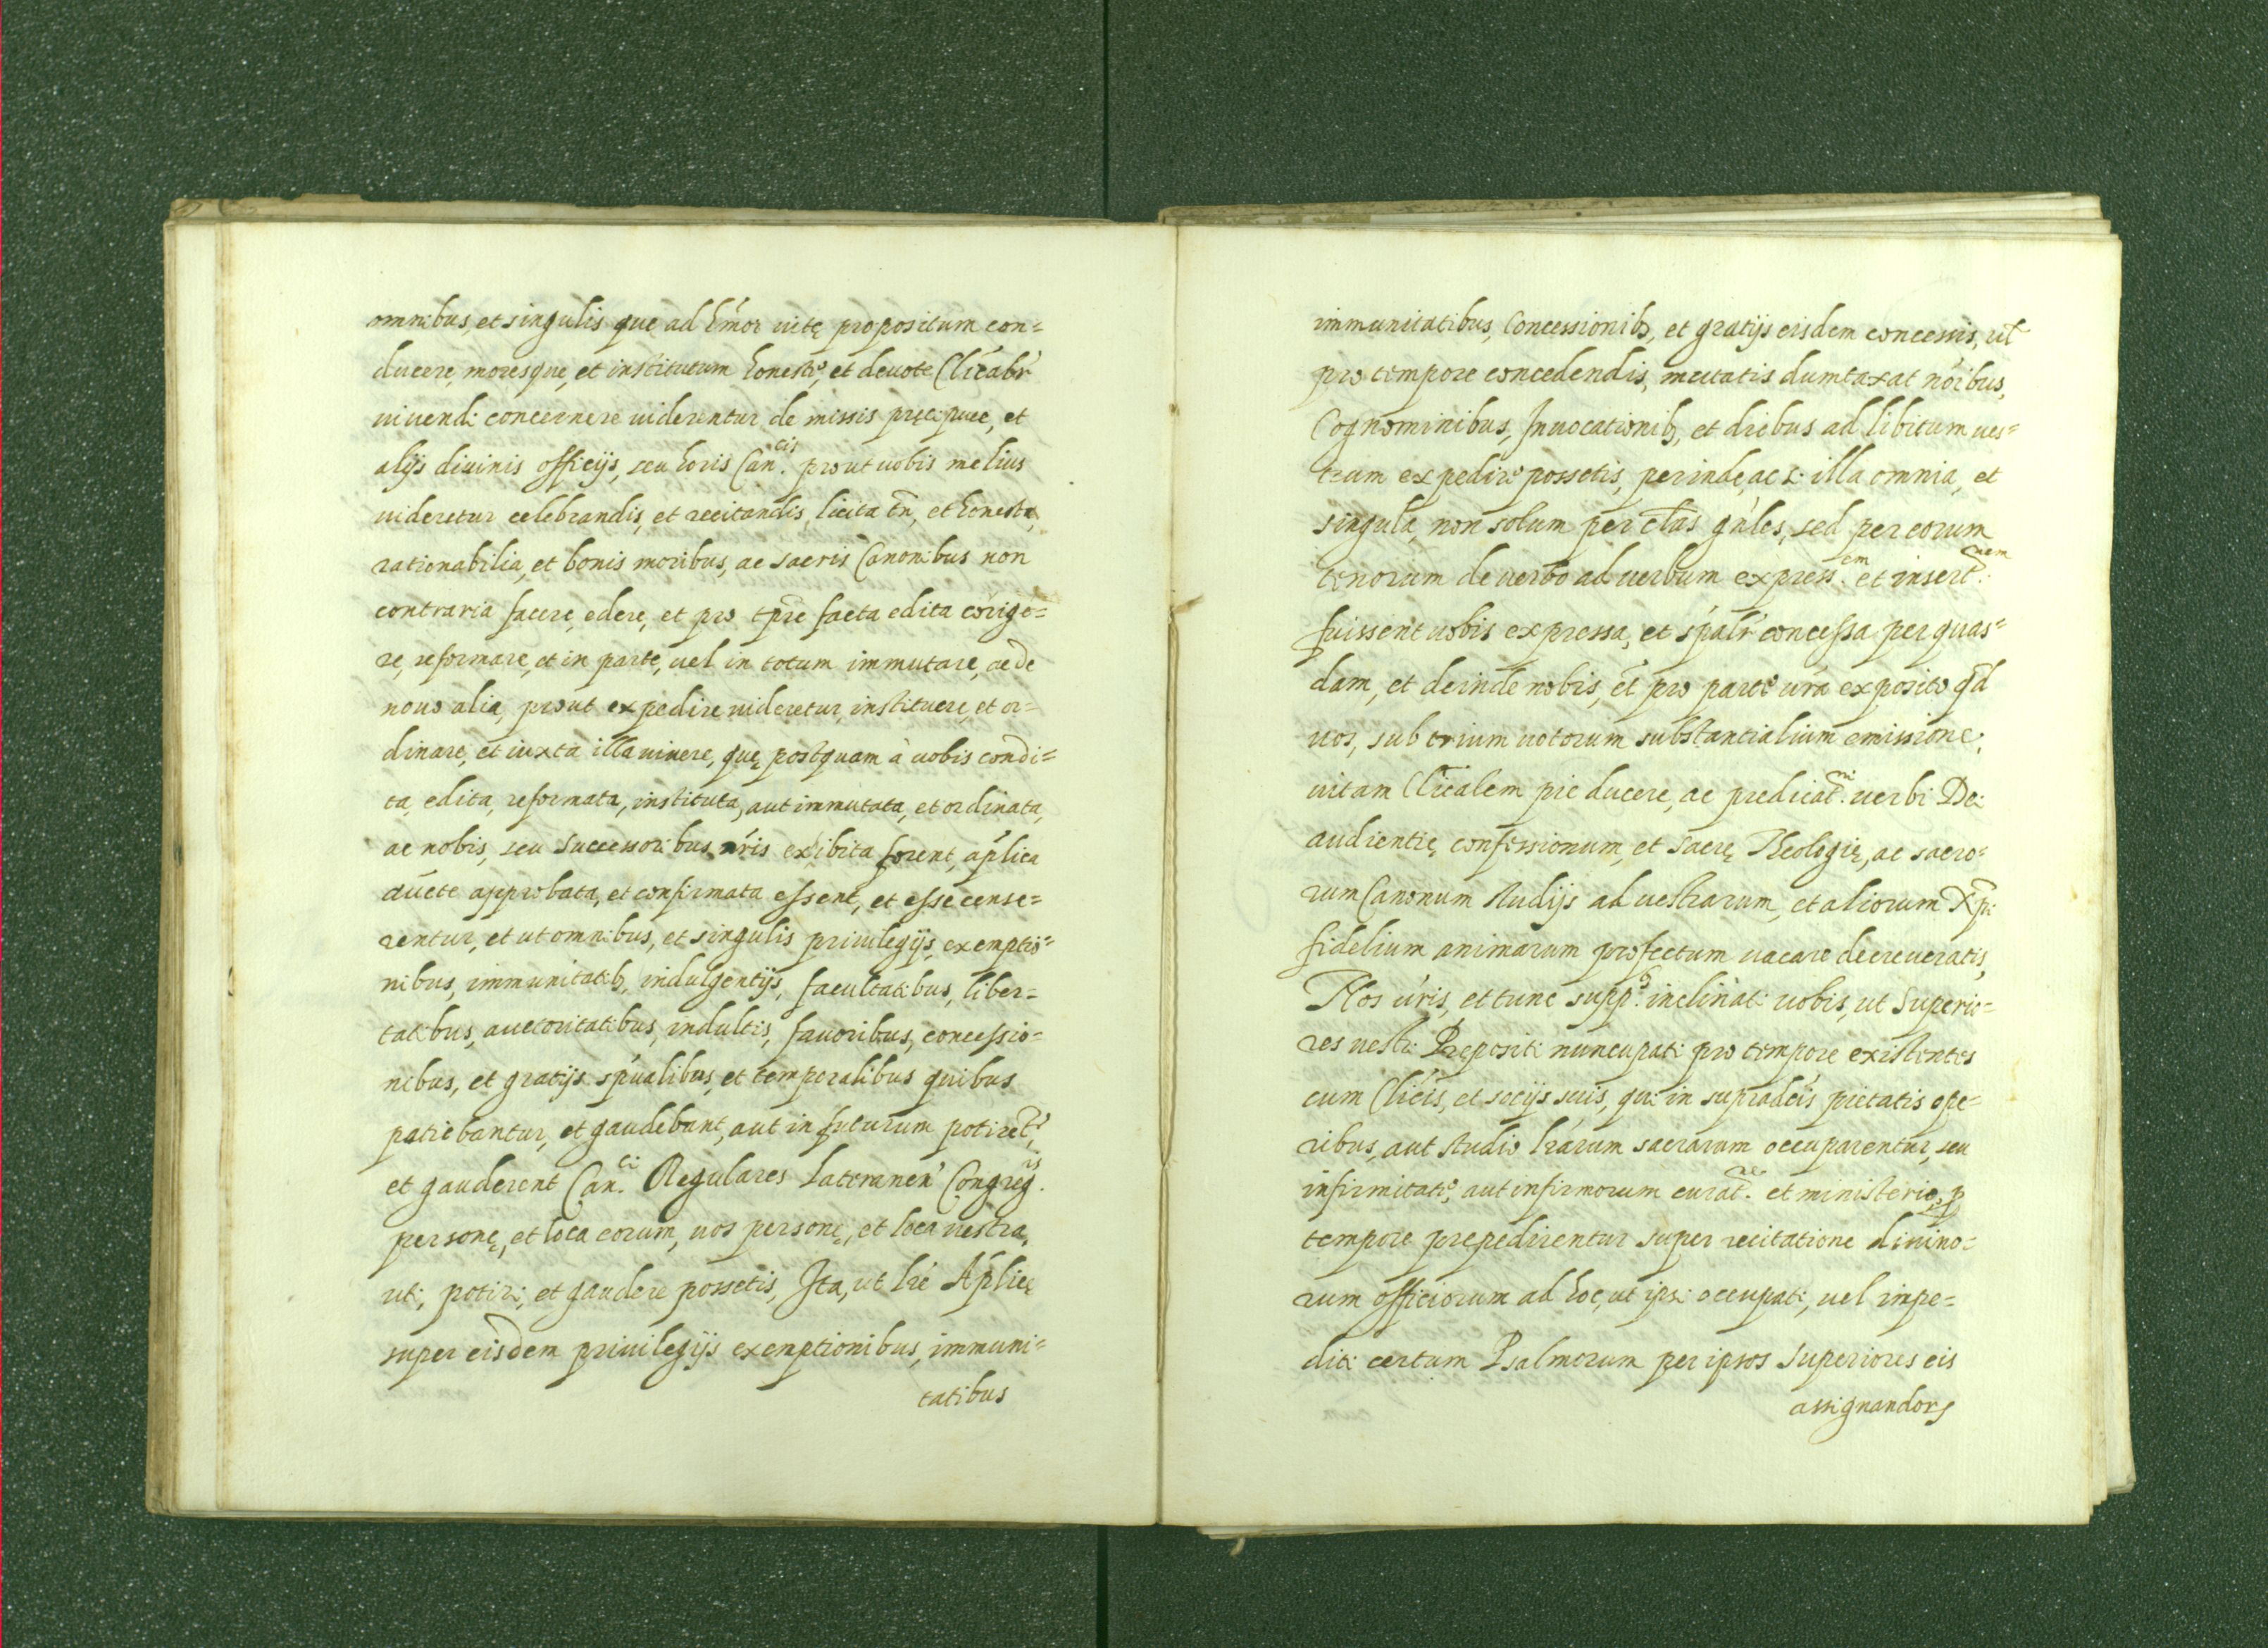 omnibus, et singulis quę ad hm̃oi uitę propositum con=
ducere, moresque, et institutum honestè, et deuote Cliĉabr̃
uiuendi concernere uiderentur, de missis pręcipuee, et
alijs diuinis officijs, seu horis Can.cis prout uobis melius
uideretur celebrandis, et recitandis, licita tñ, et honesta,
rationabilia, et bonis moribus, ac sacris Canonibus non
contraria facere, edere, et pro tp̃re facta edita cor̃ige=
re, reformare, et in parte, uel in totum immutare, ac de
nouo alia, prout expedire uideretur, instituere, et or=
dinare, et iuxta illa uiuere, quę postquam à uobis condi=
ta, edita, reformata, instituta, aut immutata, et ordinata,
ac nobis, seu Successoribus nr̃is exibita forent, ap̃lica
auc̃te approbata, et confirmata essent, et esse cense=
rentur, et ut omnibus, et singulis priuilegijs, exemptio=
nibus, immunitatib9, indulgentijs, facultatibus, liber=
tatibus, auctoritatibus, indultis, fauoribus, concessio=
nibus, et gratijs sp̃ualibus, et temporalibus quibus
patiebantur, et gaudebant, aut in futurum potirẽt,
et gauderent Can.ci Regulares Lateraneñ Congreg.is
personę, et loca eorum, uos personę, et loca uestra,
uti, potiri, et gaudere possetis, Ita, ut lr̃e Ap̃licę
super eisdem priuilegijs exemptionibus, immuni=
tatibus
immunitatibus, Concessionib9, et gratijs eisdem concessis, ul̃
pro tempore concedendis, mutatis dumtaxat nõibus,
Cognominibus, Inuocationib9, et dicbus ad libitum ues=
trum expedire possetis, perinde, ac si illa omnia, et
singula, non solum per cl̃as gñles, sed per eorum
tenorum de uerbo ad uerbum express.em et insert.nem
fuissent uobis expressa, et sp̃alr̃ concessa per quas=
dam, et deinde nobis, ẽt pro parte ur̃a exposito qd̃
uos, sub trium uotorum substantialium emissione,
uitam Cl̃icalem pie ducere, ac predicat.ni uerbi Dei
audientię confessionum, et sacrę Theologię, ac sacro=
rum Canonum studijs ad uestrarum, et aliorum Xp̃i
fidelium animarum profectum uacare decreueratis,
Nos ur̃is, et tunc supp.s inclinati uobis, ut Superio=
res uestri Prępositi nuncupati pro tempore existentes
cum Cl̃icis, et socijs suis, qui in supradc̃is pietatis ope=
ribus, aut studio lr̃arum sacrarum occuparentur, seu
infirmitate, aut infirmorum curat.ne et ministerio, p
tempore prepedirentur super recitatione diuino=
rum officiorum ad hoc, ut ipsi occupati, uel impe=
diti certum Psalmorum per ipsos Superiores eis
assignandor9